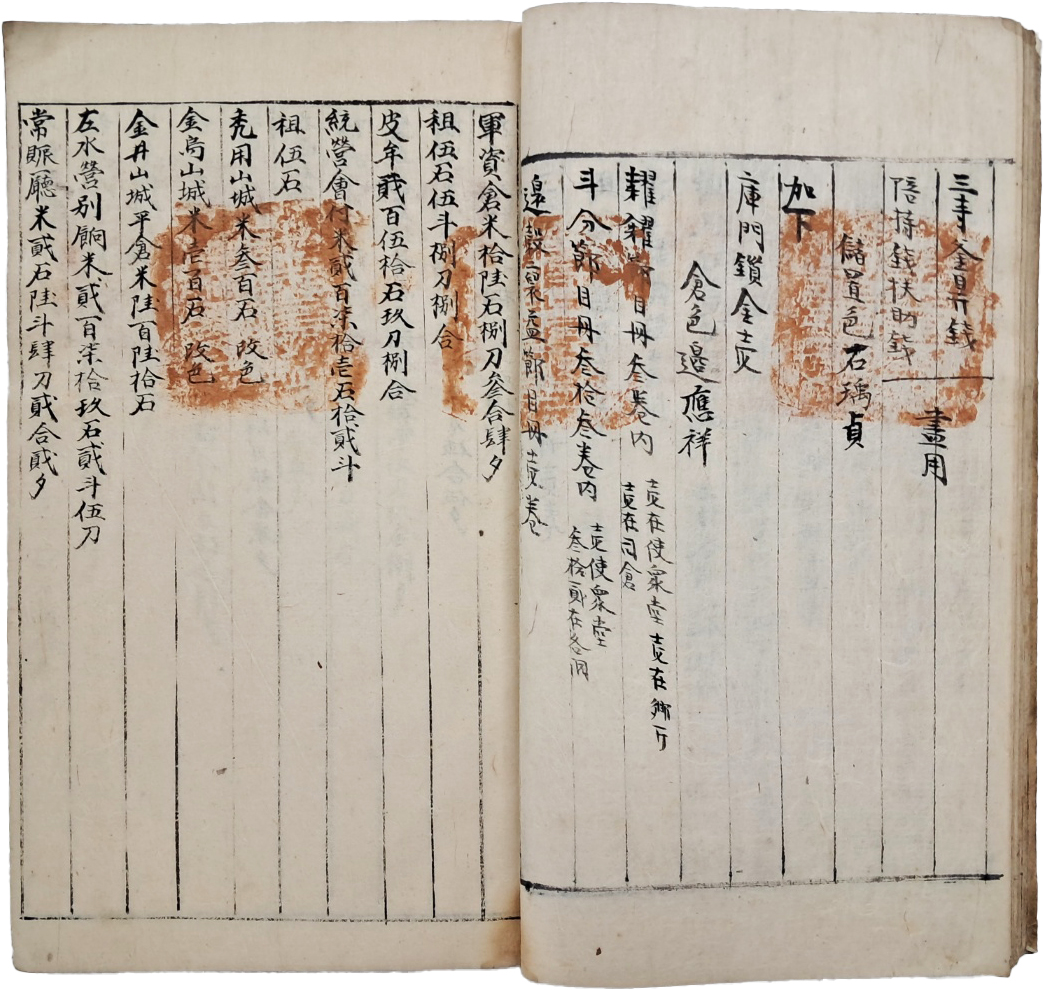 三手釜昇錢
陪持錢扶助錢 畫用
儲置色石瑀貞
加下
庫門鎖金壹
倉色邊應祥
糶糴 目冊叁卷內 壹在使衆堂壹在鄕所
壹在司倉
斗分節目冊叁拾叁卷內 壹使衆堂
叁拾貳在各洞
還穀 節目冊壹卷
軍資倉米拾陸石捌刀叄合肆夕
租伍石伍斗捌刀捌合
皮牟貳百伍拾石玖刀捌合
統營會付米貳百柒拾壱石拾貳斗
租伍石
禿用山城米叄百石 改色
金烏山城米壱百石 改色
金井山城平倉米陸百陸拾石
左水營別餉米貳百柒拾玖石貳斗伍刀
常賑廳米貳石陸斗肆刀貳合貳夕